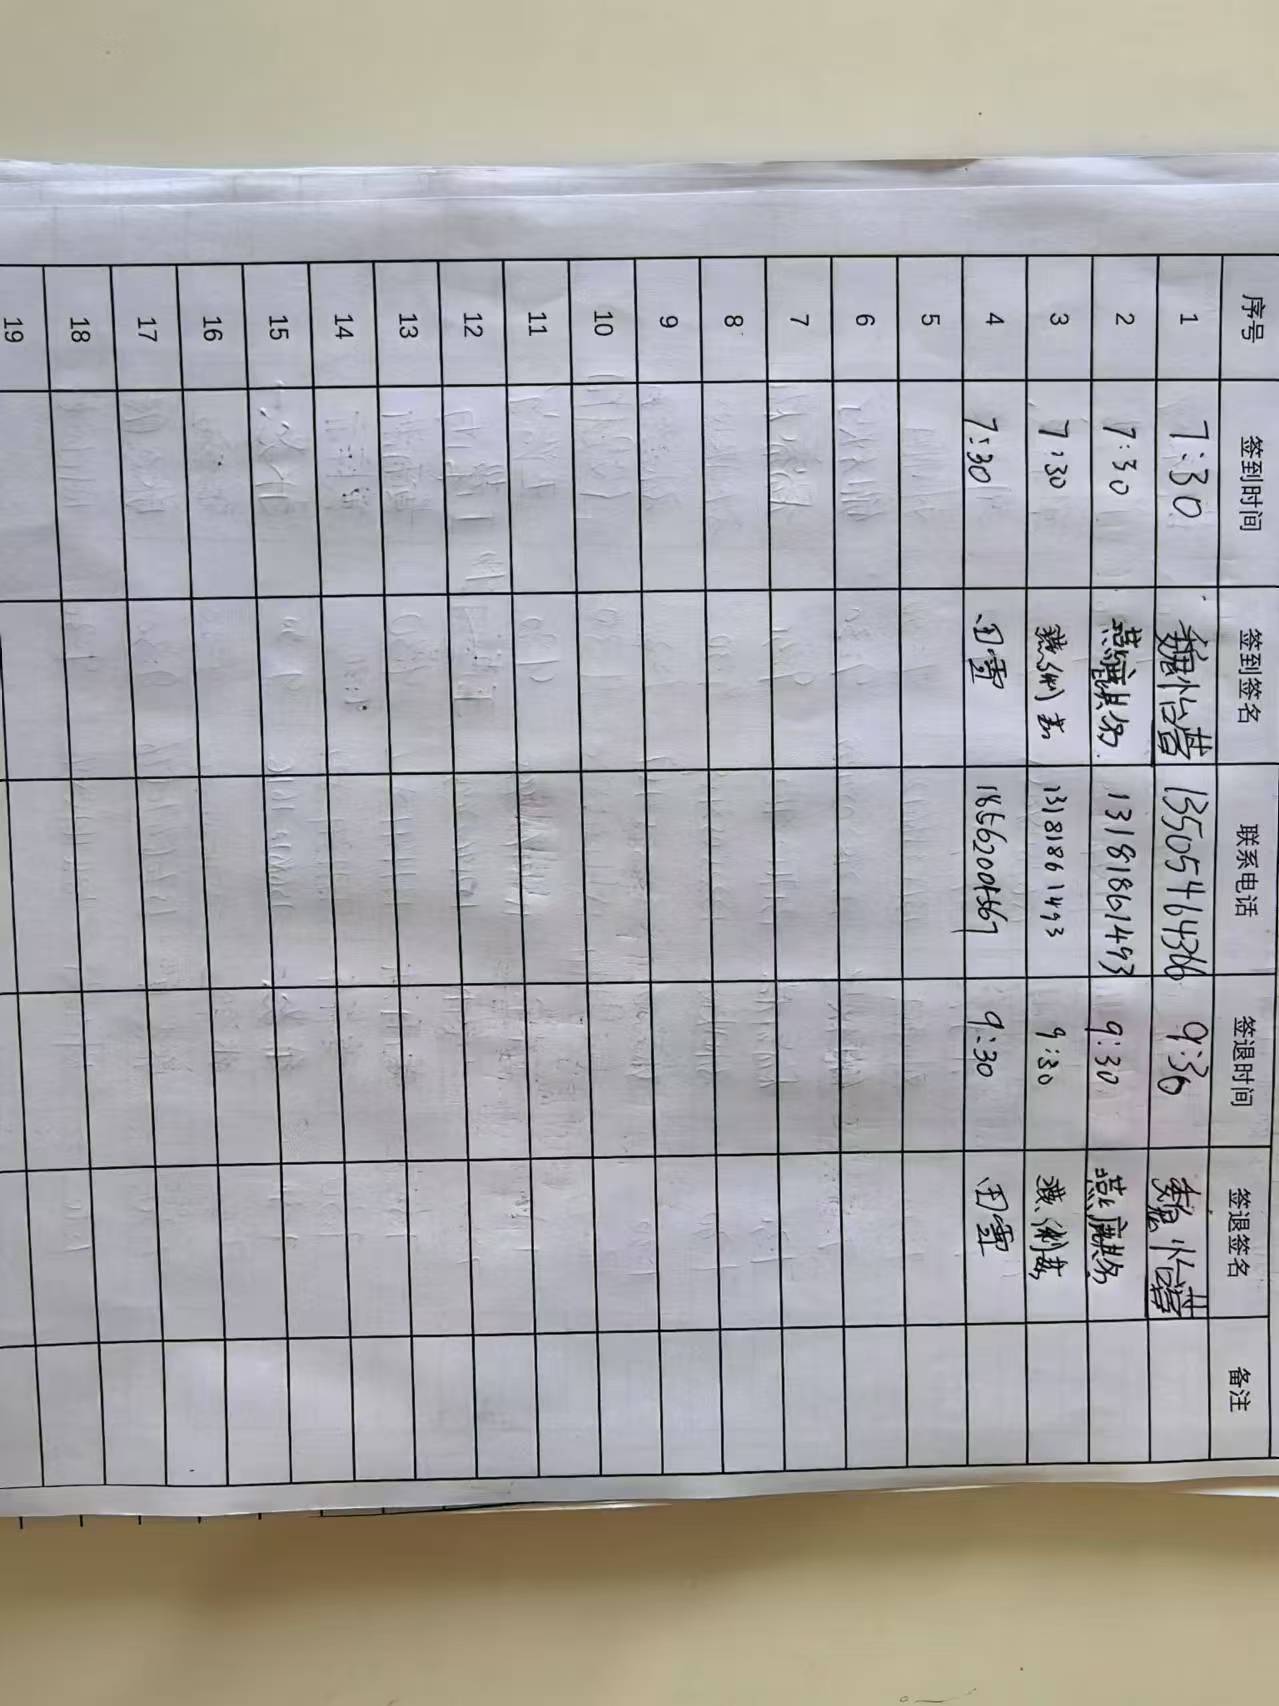 序号 签到时间 签到签名 联系电话 签退时间 签退签名 备注
1 7:30 魏怡萱 13505464366 9:30 魏怡萱
2 7:30 燕麒名 13181861493 9:30 燕麒名
3 7:30 13181861493 9:30
4 7:30 田雪 18562001567 9:30 田雪
5
6
7
8
9
10
11
12
13
14
15
16
17
18
19